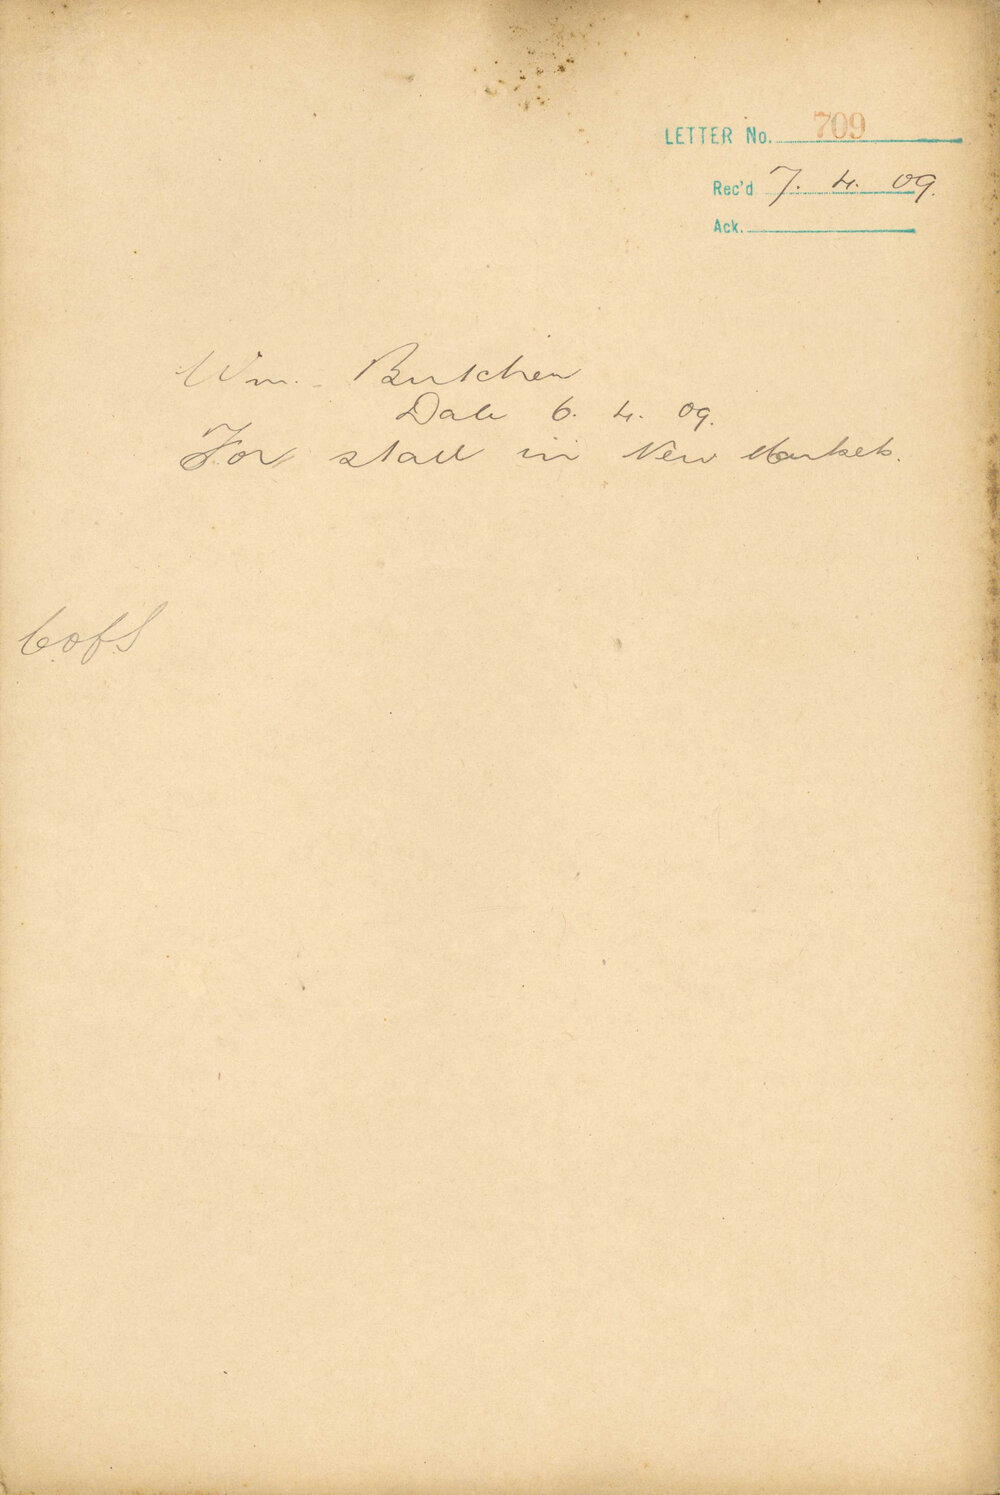 LETTER No. 709
Rec'd 7. 4. 09.
Ack.
Wm. Butcher
Date 6. 4. 09.
For stall in New Markets.
C of S